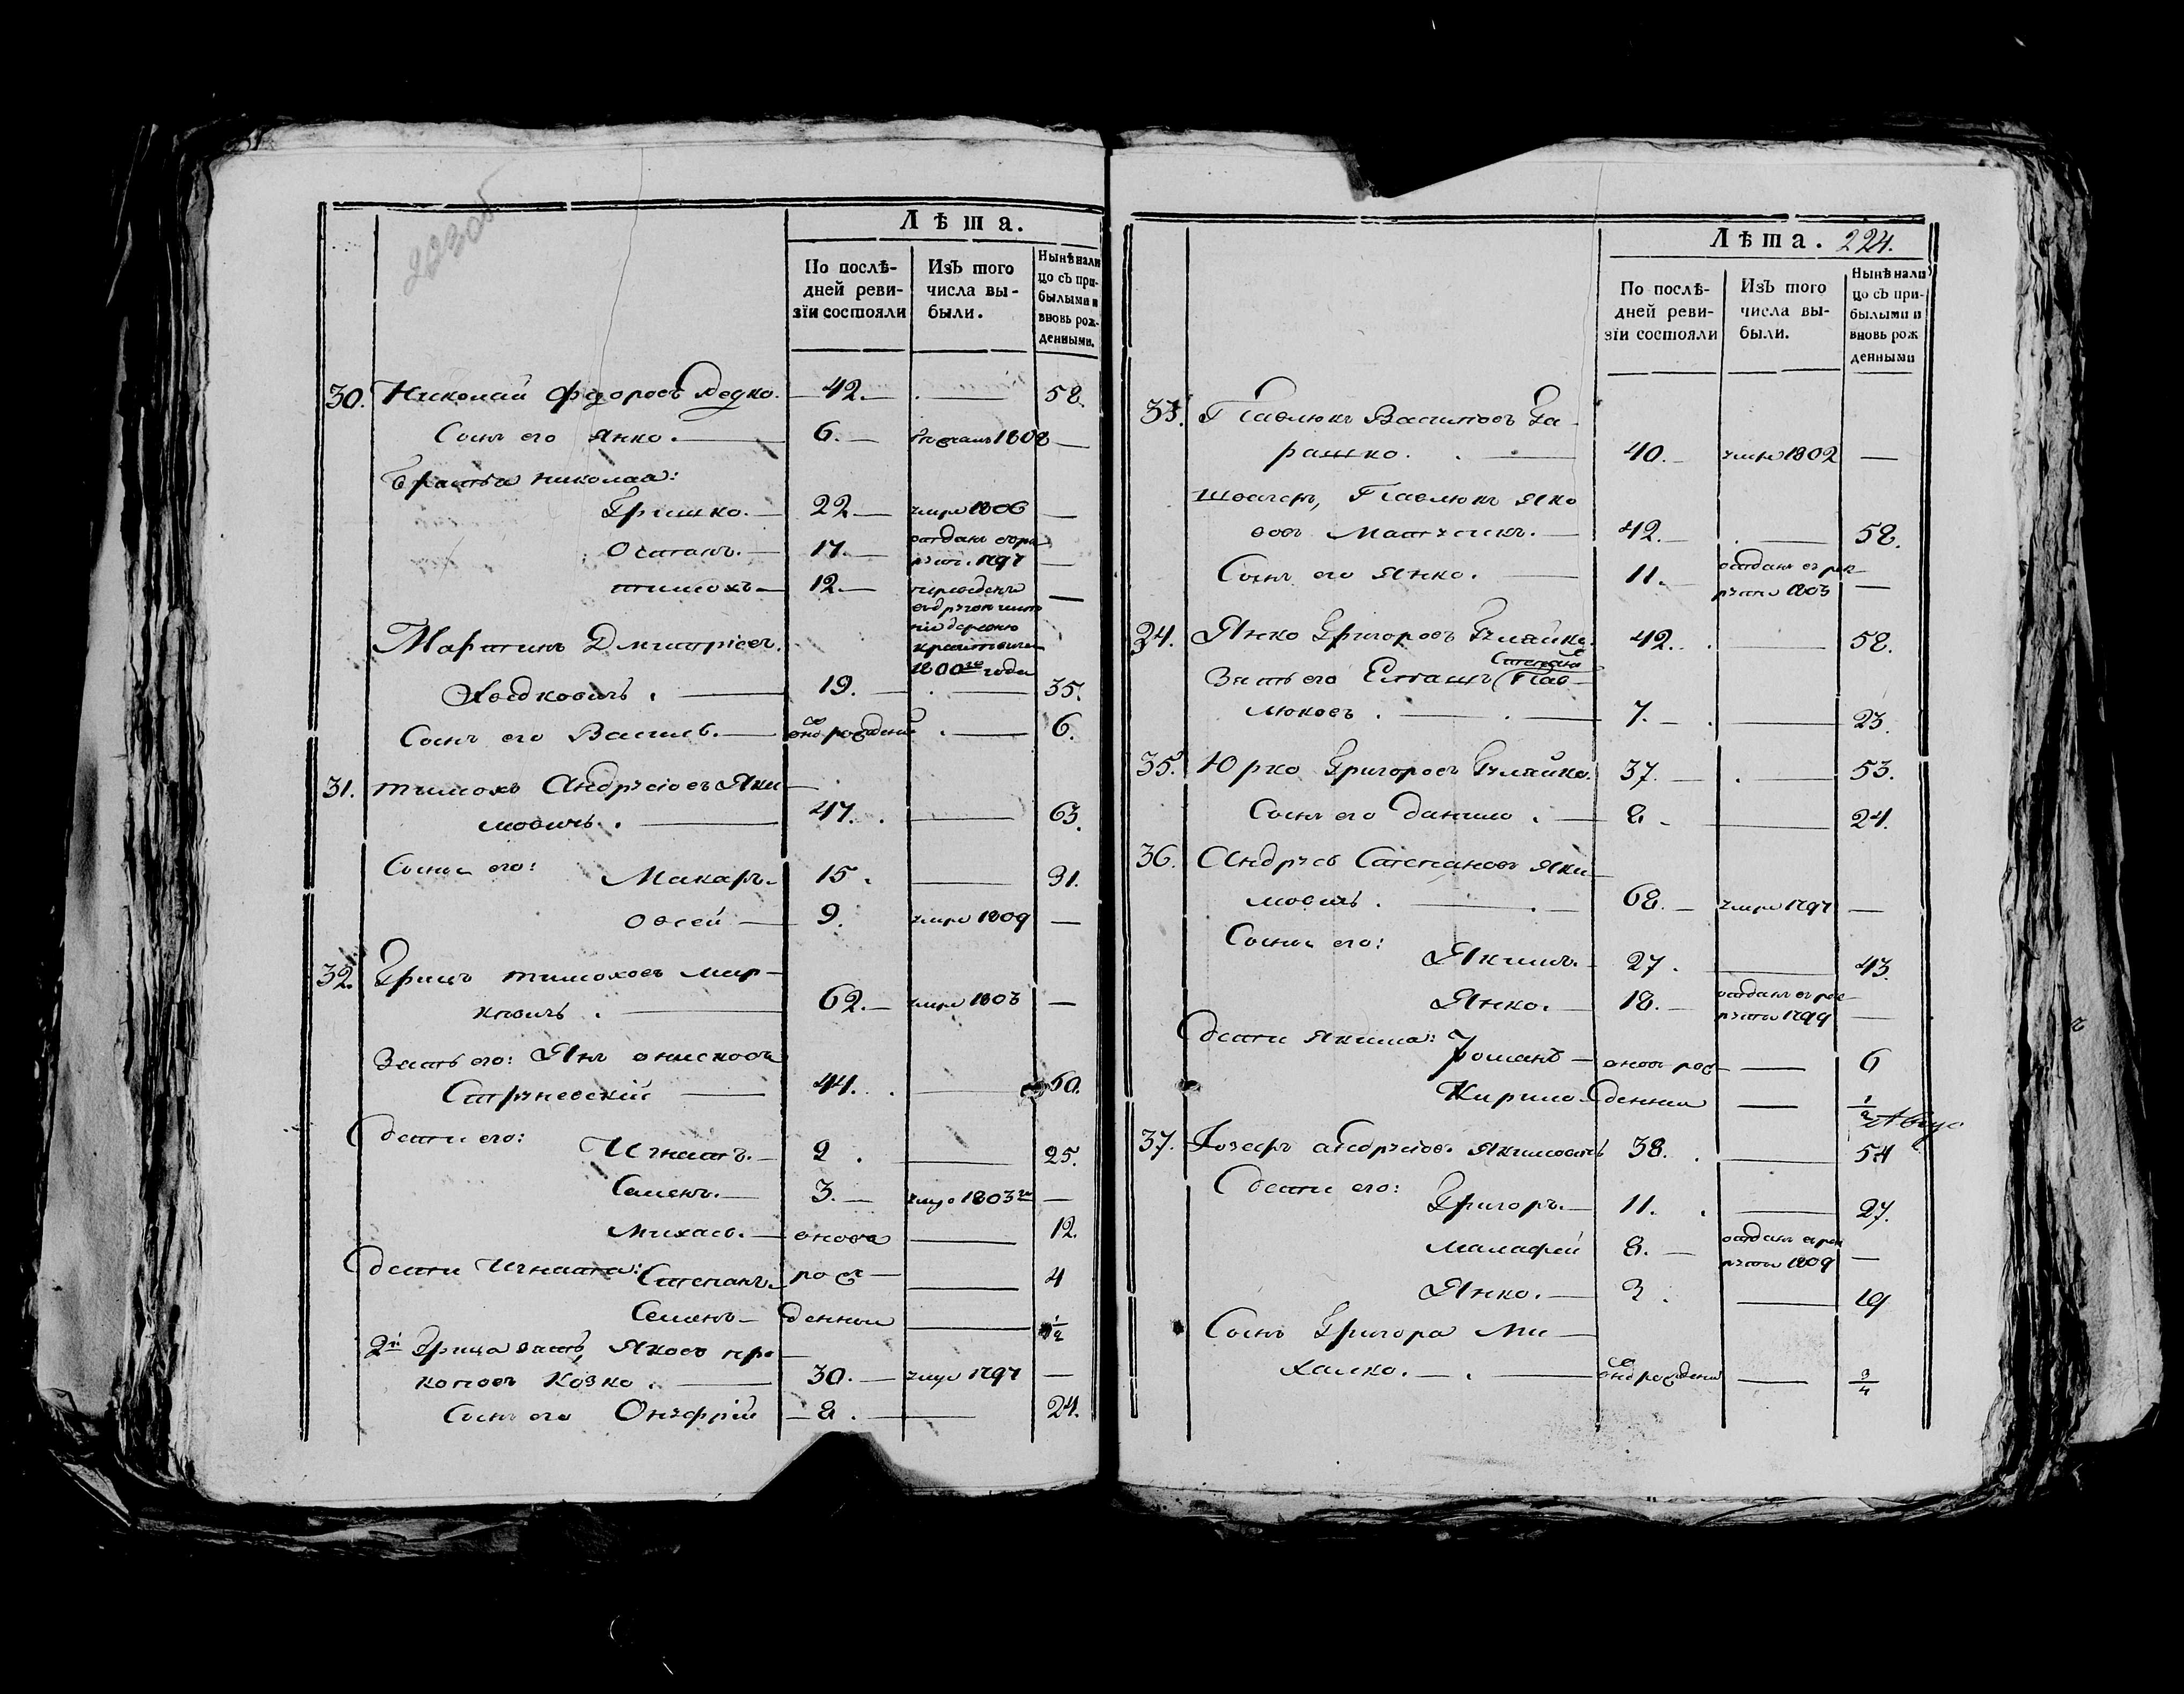 223об
Лѣта.
По послѣ-
дней реви-
зїи состояли
Изъ того
числа вы-
были.
Нынѣ нали
цо съ при-
былыми и
вновь рож-
денными.
30. Николай Федоровъ Редко. 42. 58.
Сынъ его Янко. 6. 1808
Братья Николая:
Гришко. 22 умре 1806
Остапъ. 17. отданъ въ ре
круты 1797
Тимохъ 12 переведенъ
въ другое имѣ
ніе деревню
1800го года
Мартинъ Дмитріевъ
Ходковичъ. 19. 35.
Сынъ его Василь. по рожденіи 6.
31. Тимохъ Андрусіовъ Яки
мовичъ. 47. 63.
Сыны его: Макаръ. 15. 31.
Овсей 9. умре 1809
32. Грицъ Тимоховъ Мир-
ковичъ. 62. умре 1803
Зять его: Янъ Онисковъ
44. 60.
Дѣти его: Игнатъ. 9. 25.
Семенъ. 3. умре 1803го
Михась. вновь 12.
Дѣти Игната: Степанъ рож 4
Семенъ денныи 1/2
2й Грица зять, Яковъ Про
коповъ Козко. 30. умре 1797
Сынъ его Онуфрій 8. 24.
Лѣта. 224.
По послѣ-
дней реви-
зїи состояли
Изъ того
числа вы-
были.
Нынѣ нали
цо съ при-
былыми и
вновь рож
денными
33. Павлюкъ Василіовъ Га
рашко. 40. умре 1802
Швагеръ, Павлюкъ Яко
вовъ 42. 58.
Сынъ его Янко. 11. отданъ въ рек
руты 1803
34. Янко Григоровъ Гуляйко. 42. 58.
Степана
Зять его Павлюковъ. 7. 23.
35. Юрко Григоровъ Гуляйко. 37. 53.
Сынъ его Данило. 8 24.
36. Андрусь Степановъ Яки
мовичъ. 68. умре 1797
Сыны его: Якимъ. 27. 43.
Янко. 18. отданъ въ рек
руты 1799
Дѣти Якима: Романъ вновь рож 6
Кирило денныи 1/2
37. Іозефъ Андрусіовъ Якимовичъ 38. 54
Дѣти его: Григоръ. 11. 27.
Малафей 8. отданъ въ рек
руты 1809
Янко. 3. 19
Сынъ Григора Ми
халко. по рожденіи 3/4